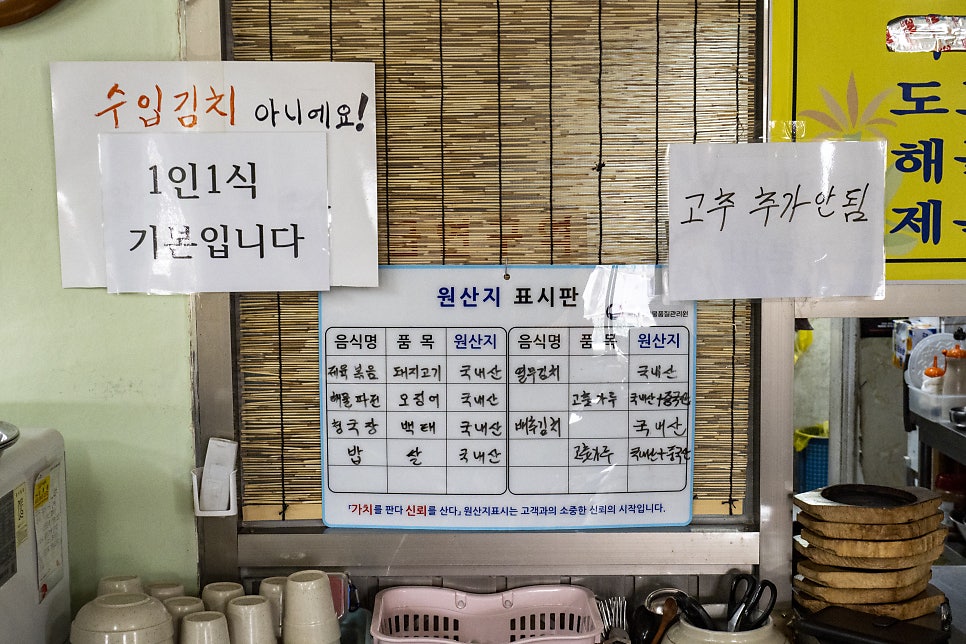 수입김치 아니에요!
1인1식
기본입니다
고추 추가안됨
도
해
제
원산지 표시판
품질관리원
음식명 품 목 원산지 음식명 품 목 원산지
제육볶음 돼지고기 국내산 열무김치 국내산
해물파전 오징어 국내산 고춧가루 국내산+중국산
청국장 백태 국내산 배추김치 국내산
밥 쌀 국내산 고춧가루 국내산+중국산
「가치를 판다 신뢰를 산다」 원산지표시는 고객과의 소중한 신뢰의 시작입니다.